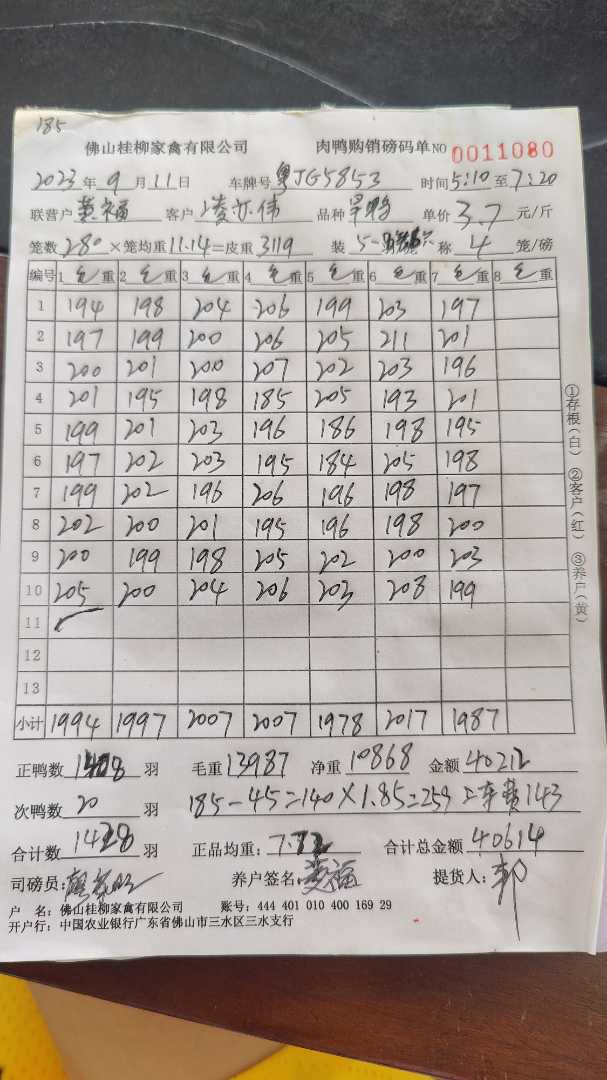 185
佛山桂柳家禽有限公司 肉鸭购销磅码单 NO 0011080
2023年9月11日 车牌号粤JG5853 时间5:10至7:20
联营户黄福 客户凌亦伟 品种旱鸭 单价3.7元/斤
笼数280×笼均重11.14=皮重3119 装5- 称4笼/磅
编号 1毛重 2毛重 3毛重 4毛重 5毛重 6毛重 7毛重 8毛重
1 194 198 204 206 199 203 197
2 197 199 200 206 205 211 201
3 200 201 200 207 202 203 196
4 201 195 198 185 205 193 201
5 199 201 203 196 186 198 195
6 197 202 203 195 184 205 198
7 199 202 196 206 196 198 197
8 202 200 201 195 196 198 200
9 200 199 198 205 202 200 203
10 205 200 204 206 203 208 199
11
12
13
小计 1994 1997 2007 2007 1978 2017 1987
正鸭数1408羽 毛重13987 净重10868 金额40212
次鸭数20羽 185-45=140×1.85=259 上车费143
合计数1428羽 正品均重:7.72 合计总金额40614
司磅员: 养户签名:黄福 提货人:郭
户 名:佛山桂柳家禽有限公司 账号:444 401 010 400 169 29
开户行:中国农业银行广东省佛山市三水区三水支行
①存根(白) ②客户(红) ③养户(黄)